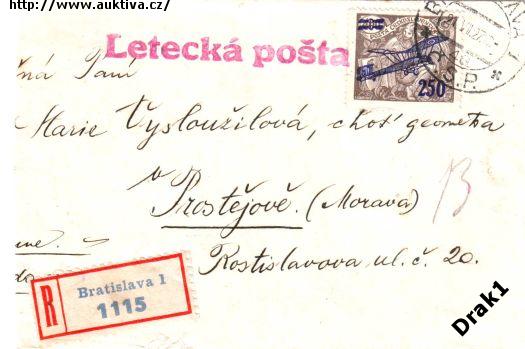 http://www.auktiva.cz/
Letecká pošta
250
S.P.
ná Paní
Marie Vysloužilová, choť geometra
v
Prostějově. (Morava)
Rostislavova ul. č. 20.
13
R
Bratislava 1
1115
Drak1